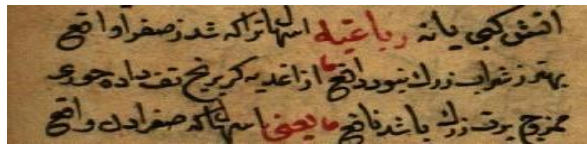 اتش کبی یا نه رباعیه اسهال تراکه شد ز صفرا واقع
بهتر ز شراب زرك نبود دافع ما از اغدیه کر برنج تف داده خوری
ممزوج برف زرك باشد نافع ما یعنی اسهال که صفرا و